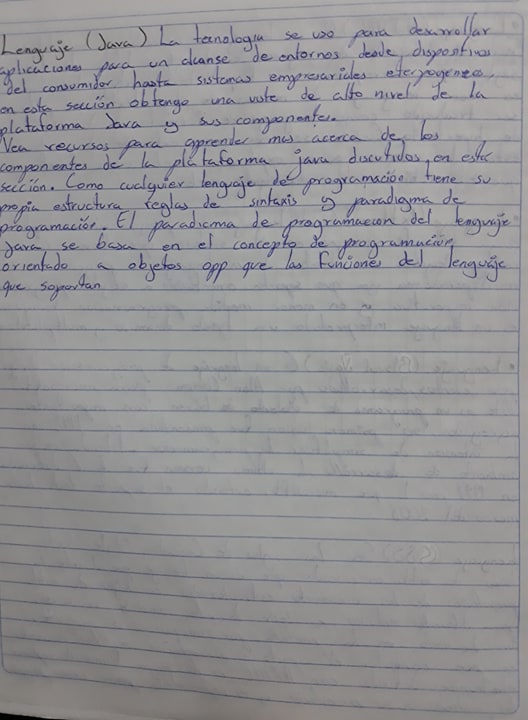 Lenguaje (Java) La tecnologia se uso para desarrollar
aplicaciones para un alcanse de entornos desde dispositivos
del consumidor hasta sistemas empresariales eterpogeneos,
en esta sección obtengo una vista de alto nivel de la
plataforma Java y sus componentes.
Vea recursos para aprender mas acerca de los
componentes de la plataforma java discutidos, en esta
sección. Como cualquier lenguaje de programación tiene su
propia estructura reglas de sintaxis y paradigma de
programación. El paradigma de programacion del lenguaje
Java se basa en el concepto de programación
orientado a objetos opp que las Funciones del lenguaje
que soportan